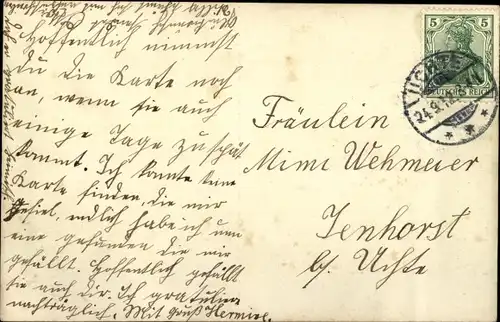 Hoffentlich nimmst
du die Karte noch
an, wenn sie auch
einige Tage zu spät
kommt. Ich konnte keine
Karte finden, die mir
gefiel, endlich habe ich nun
eine gefunden die mir
gefällt. Hoffentlich gefällt
sie auch dir. Ich gratuliere
nachträglich. Mit Gruß Hermine.
5 5
DEUTSCHES REICH
UCHTE
Fräulein
Mimi Wehmeier
Jenhorst
b/ Uchte